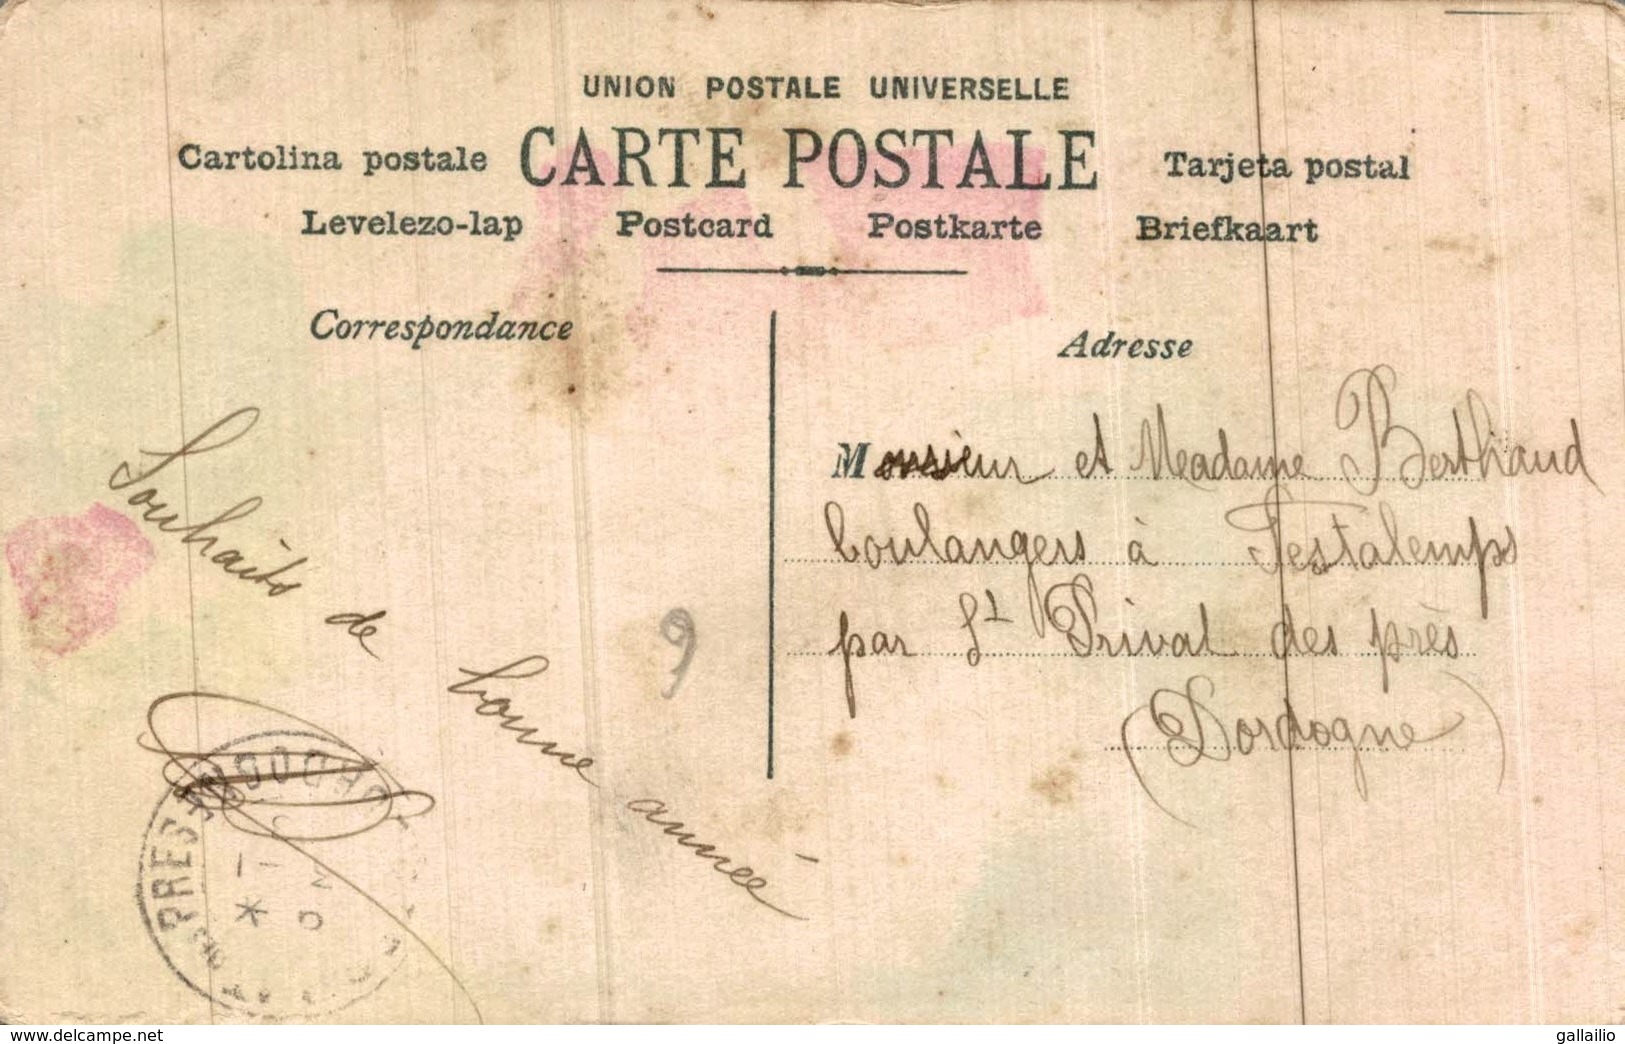 UNION POSTALE UNIVERSELLE
CARTE POSTALE
Cartolina postale
Tarjeta postal
Levelezo-lap Postcard Postkarte Briefkaart
Correspondance
Adresse
Souhaits de bonne année
9
Monsieur et Madame Berthaud
boulangers à Festalemps
par St Privat des près
(Dordogne)
delcampe.net
gallailio